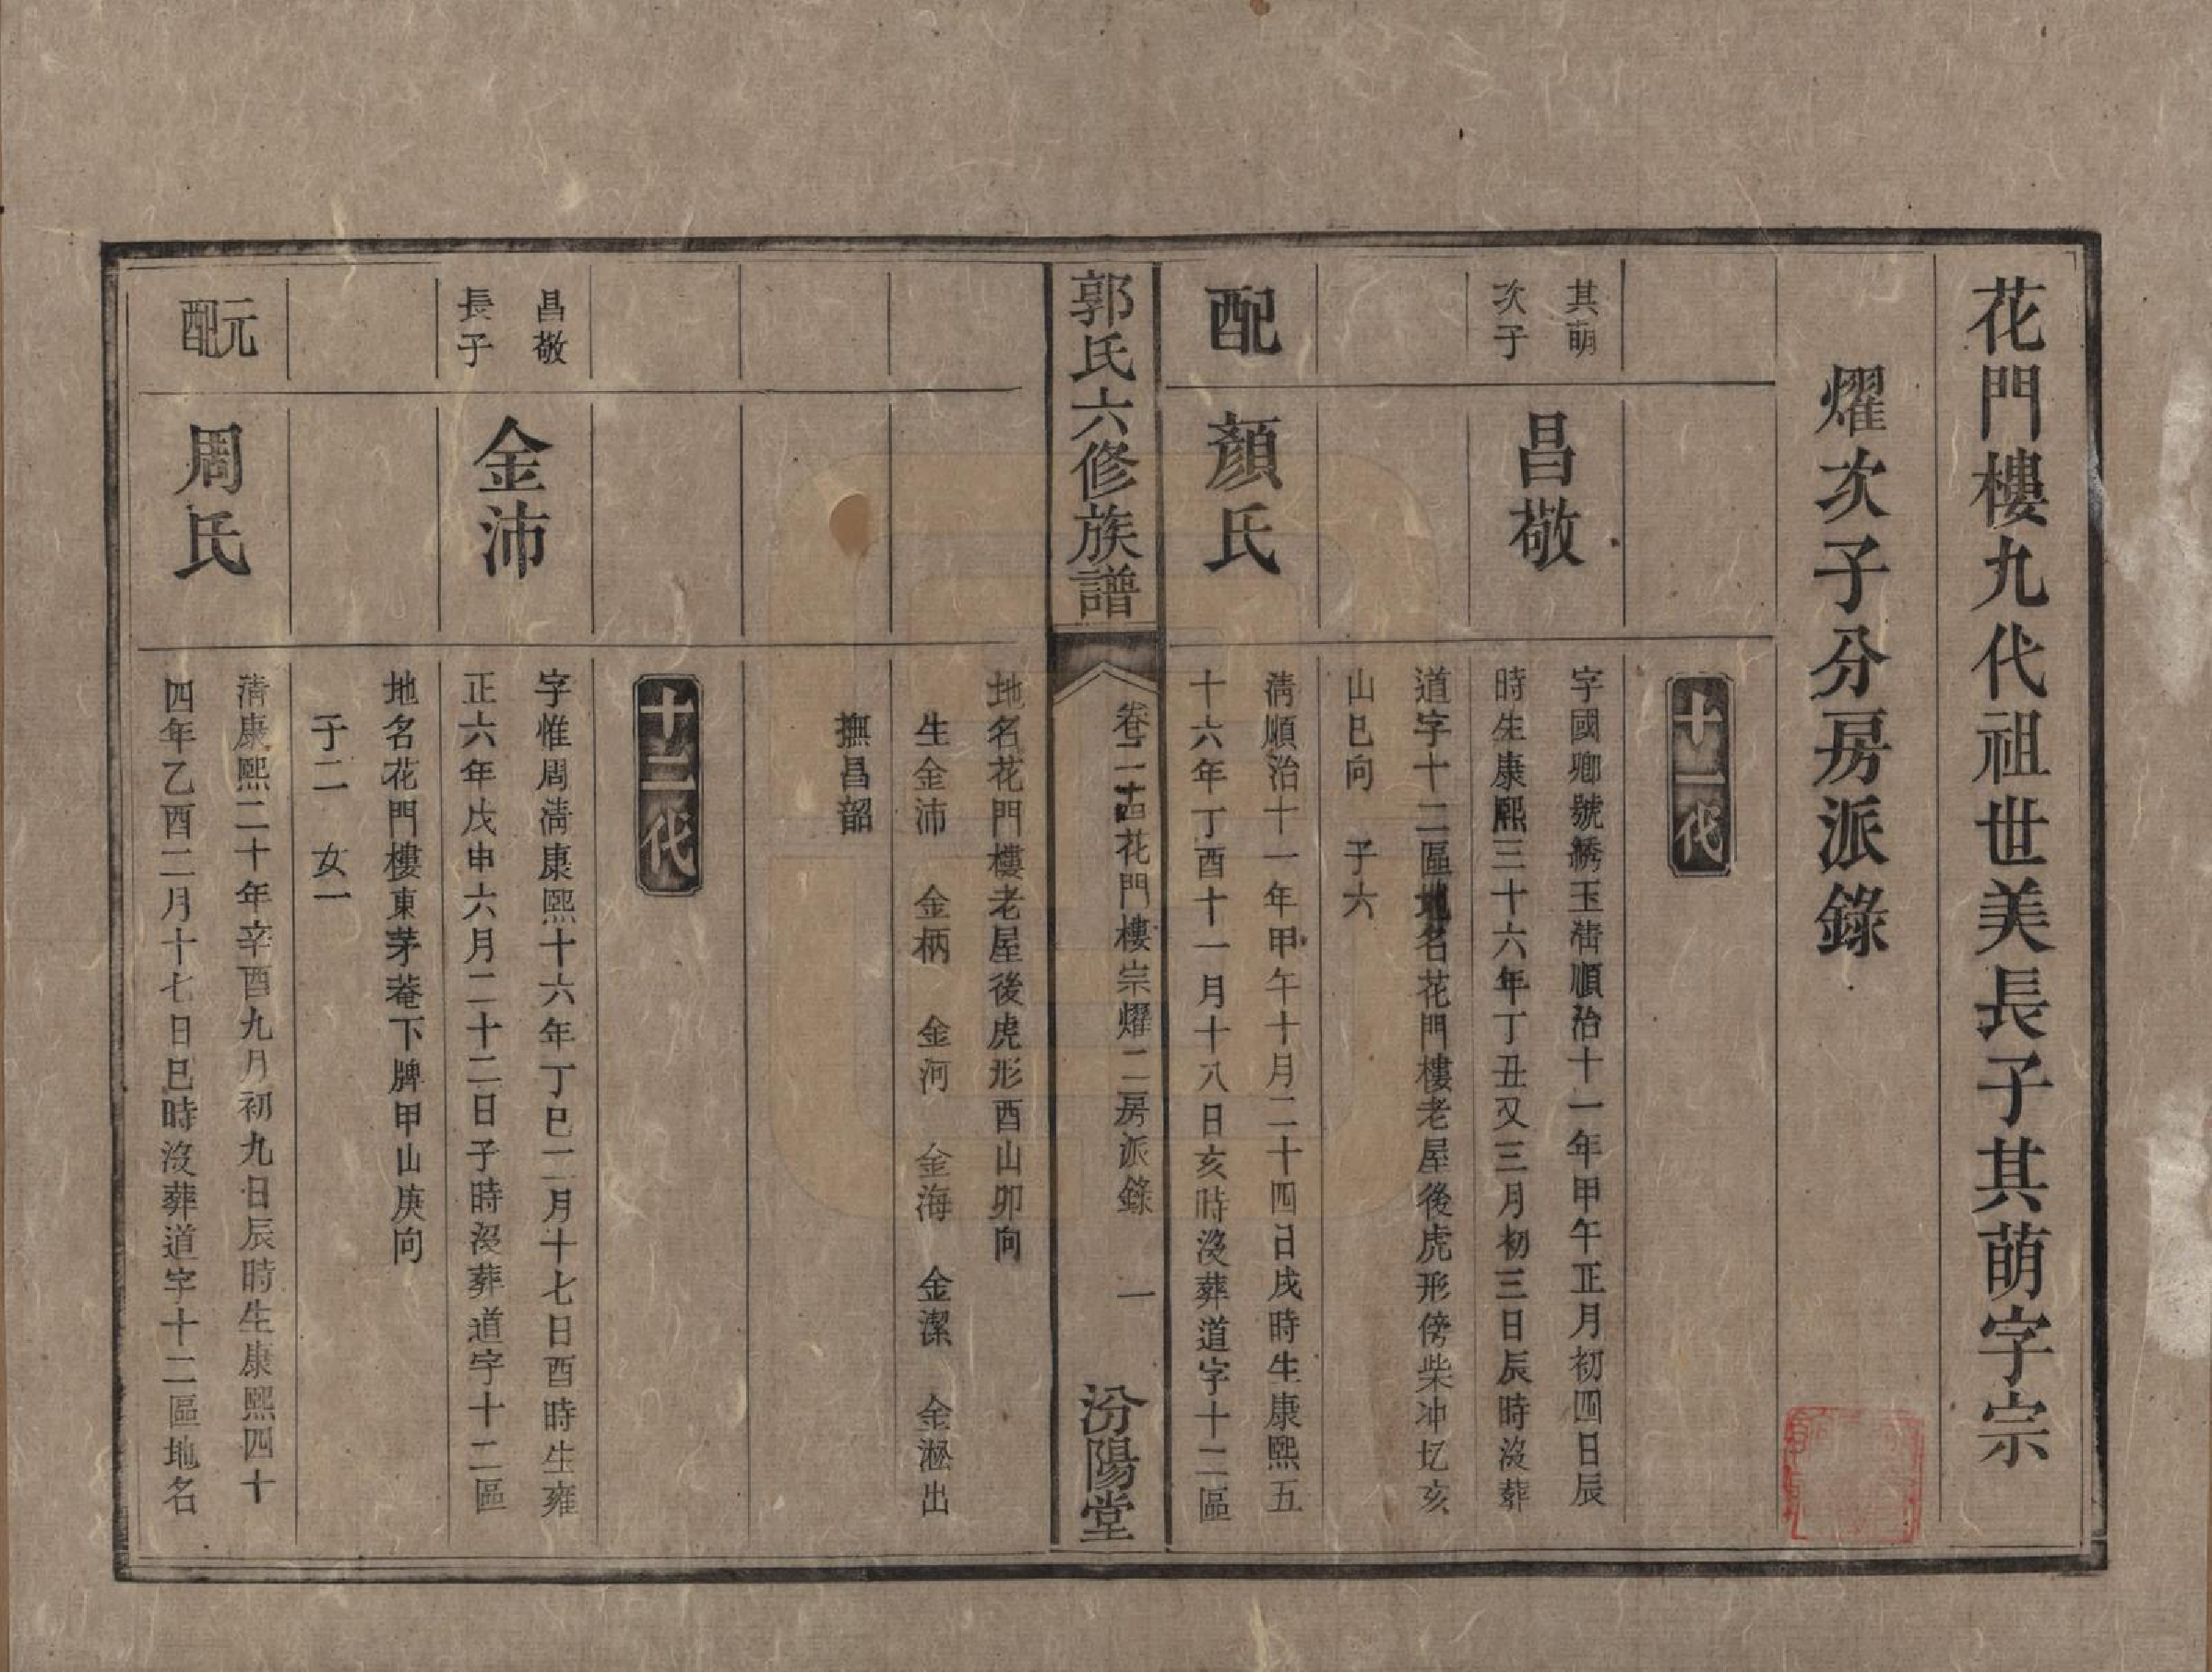 花門樓九代祖世美長子其萌字宗
燿次子分房派錄
十一代
其萌
次子
昌敬
字國卿號綉玉淸順治十一年甲午正月初四日辰
時生康熙三十六年丁丑又三月初三日辰時沒葬
道字十二區地名花門樓老屋後虎形傍柴冲圪亥
山巳向　子六
配
顏氏
淸順治十一年甲午十月二十四日戌時生康熙五
十六年丁酉十一月十八日亥時沒葬道字十二區
郭氏六修族譜
卷二十四花門樓崇燿二房派錄　一
汾陽堂
地名花門樓老屋後虎形酉山卯向
生金沛　金柄　金河　金海　金潔　金淞出
撫昌韶
十二代
昌敬
長子
金沛
字惟周淸康熙十六年丁巳二月十七日酉時生雍
正六年戊申六月二十二日子時沒葬道字十二區
地名花門樓東茅菴下牌甲山庚向
子二　女一
元配
周氏
淸康熙二十年辛酉九月初九日辰時生康熙四十
四年乙酉二月十七日巳時沒葬道字十二區地名